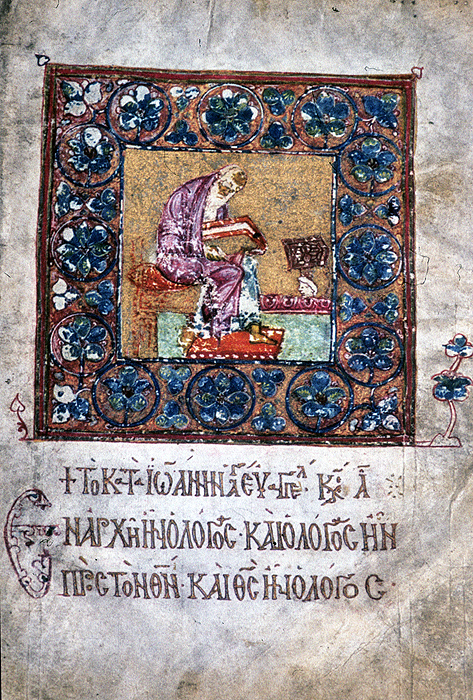 + ΤΟ ΚΑΤ ΙΩΑΝΝΗΝ ΕΥΑΓΓΕΛ ΚΕ Α
ΕΝ ΑΡΧΗ ΗΝ Ο ΛΟΓΟC· ΚΑΙ Ο ΛΟΓΟC ΗΝ
ΠΡΟC ΤΟΝ ΘΝ· ΚΑΙ ΘC ΗΝ Ο ΛΟΓΟC·